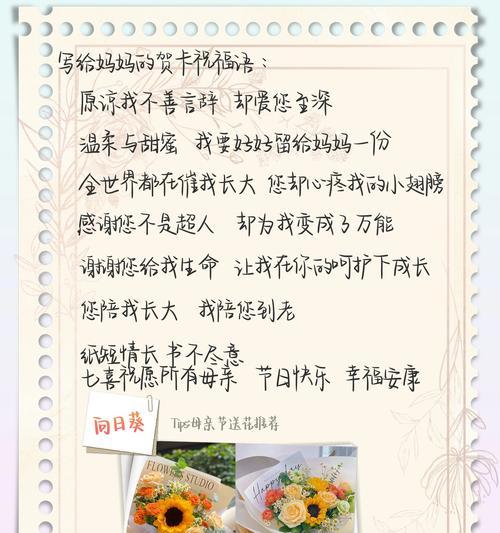 写给妈妈的贺卡祝福语：
原谅我不善言辞 却爱您至深
温柔与甜蜜 我要好好留给妈妈一份
全世界都在催我长大 您却心疼我的小翅膀
感谢您不是超人 却为我变成了万能
谢谢您给我生命 让我在你的呵护下成长
您陪我长大 我陪您到老
纸短情长 书不尽意
七喜祝愿所有母亲 节日快乐 幸福安康
向日葵
Tips母亲节送花推荐
FLOWER STUDIO
Happy day